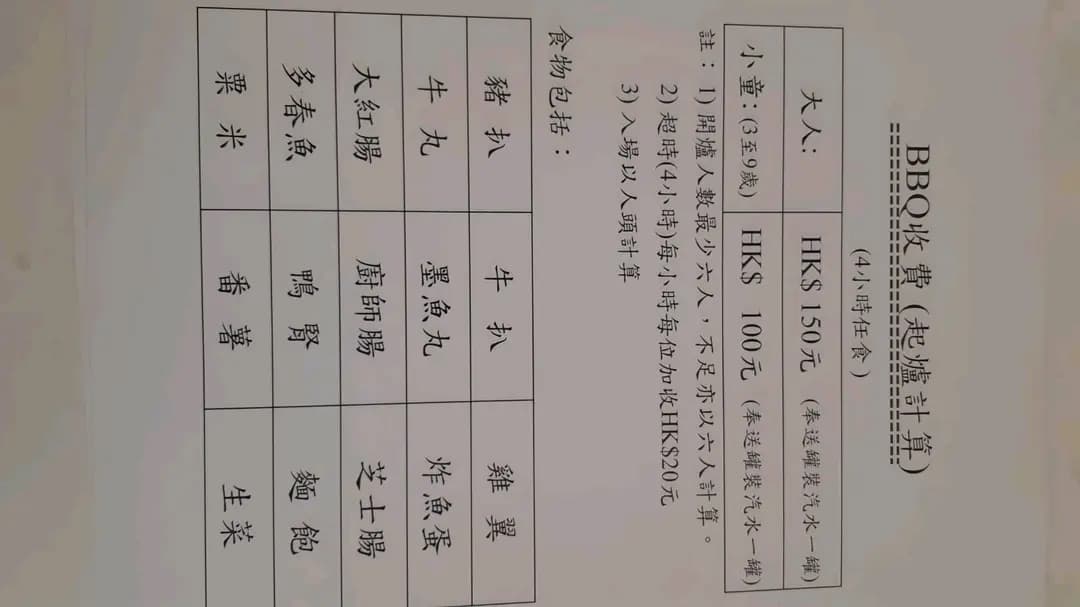 BBQ收費 (起爐計算)
(4小時任食)
大人: HK$ 150元 (奉送罐裝汽水一罐)
小童: (3至9歲) HK$ 100元 (奉送罐裝汽水一罐)
註：1) 開爐人數最少六人，不足亦以六人計算。
2) 超時(4小時)每小時每位加收HK$20元
3) 入場以人頭計算
食物包括：
豬扒 牛扒 雞翼
牛丸 墨魚丸 炸魚蛋
大紅腸 廚師腸 芝士腸
多春魚 鴨腎 麵飽
粟米 番薯 生菜